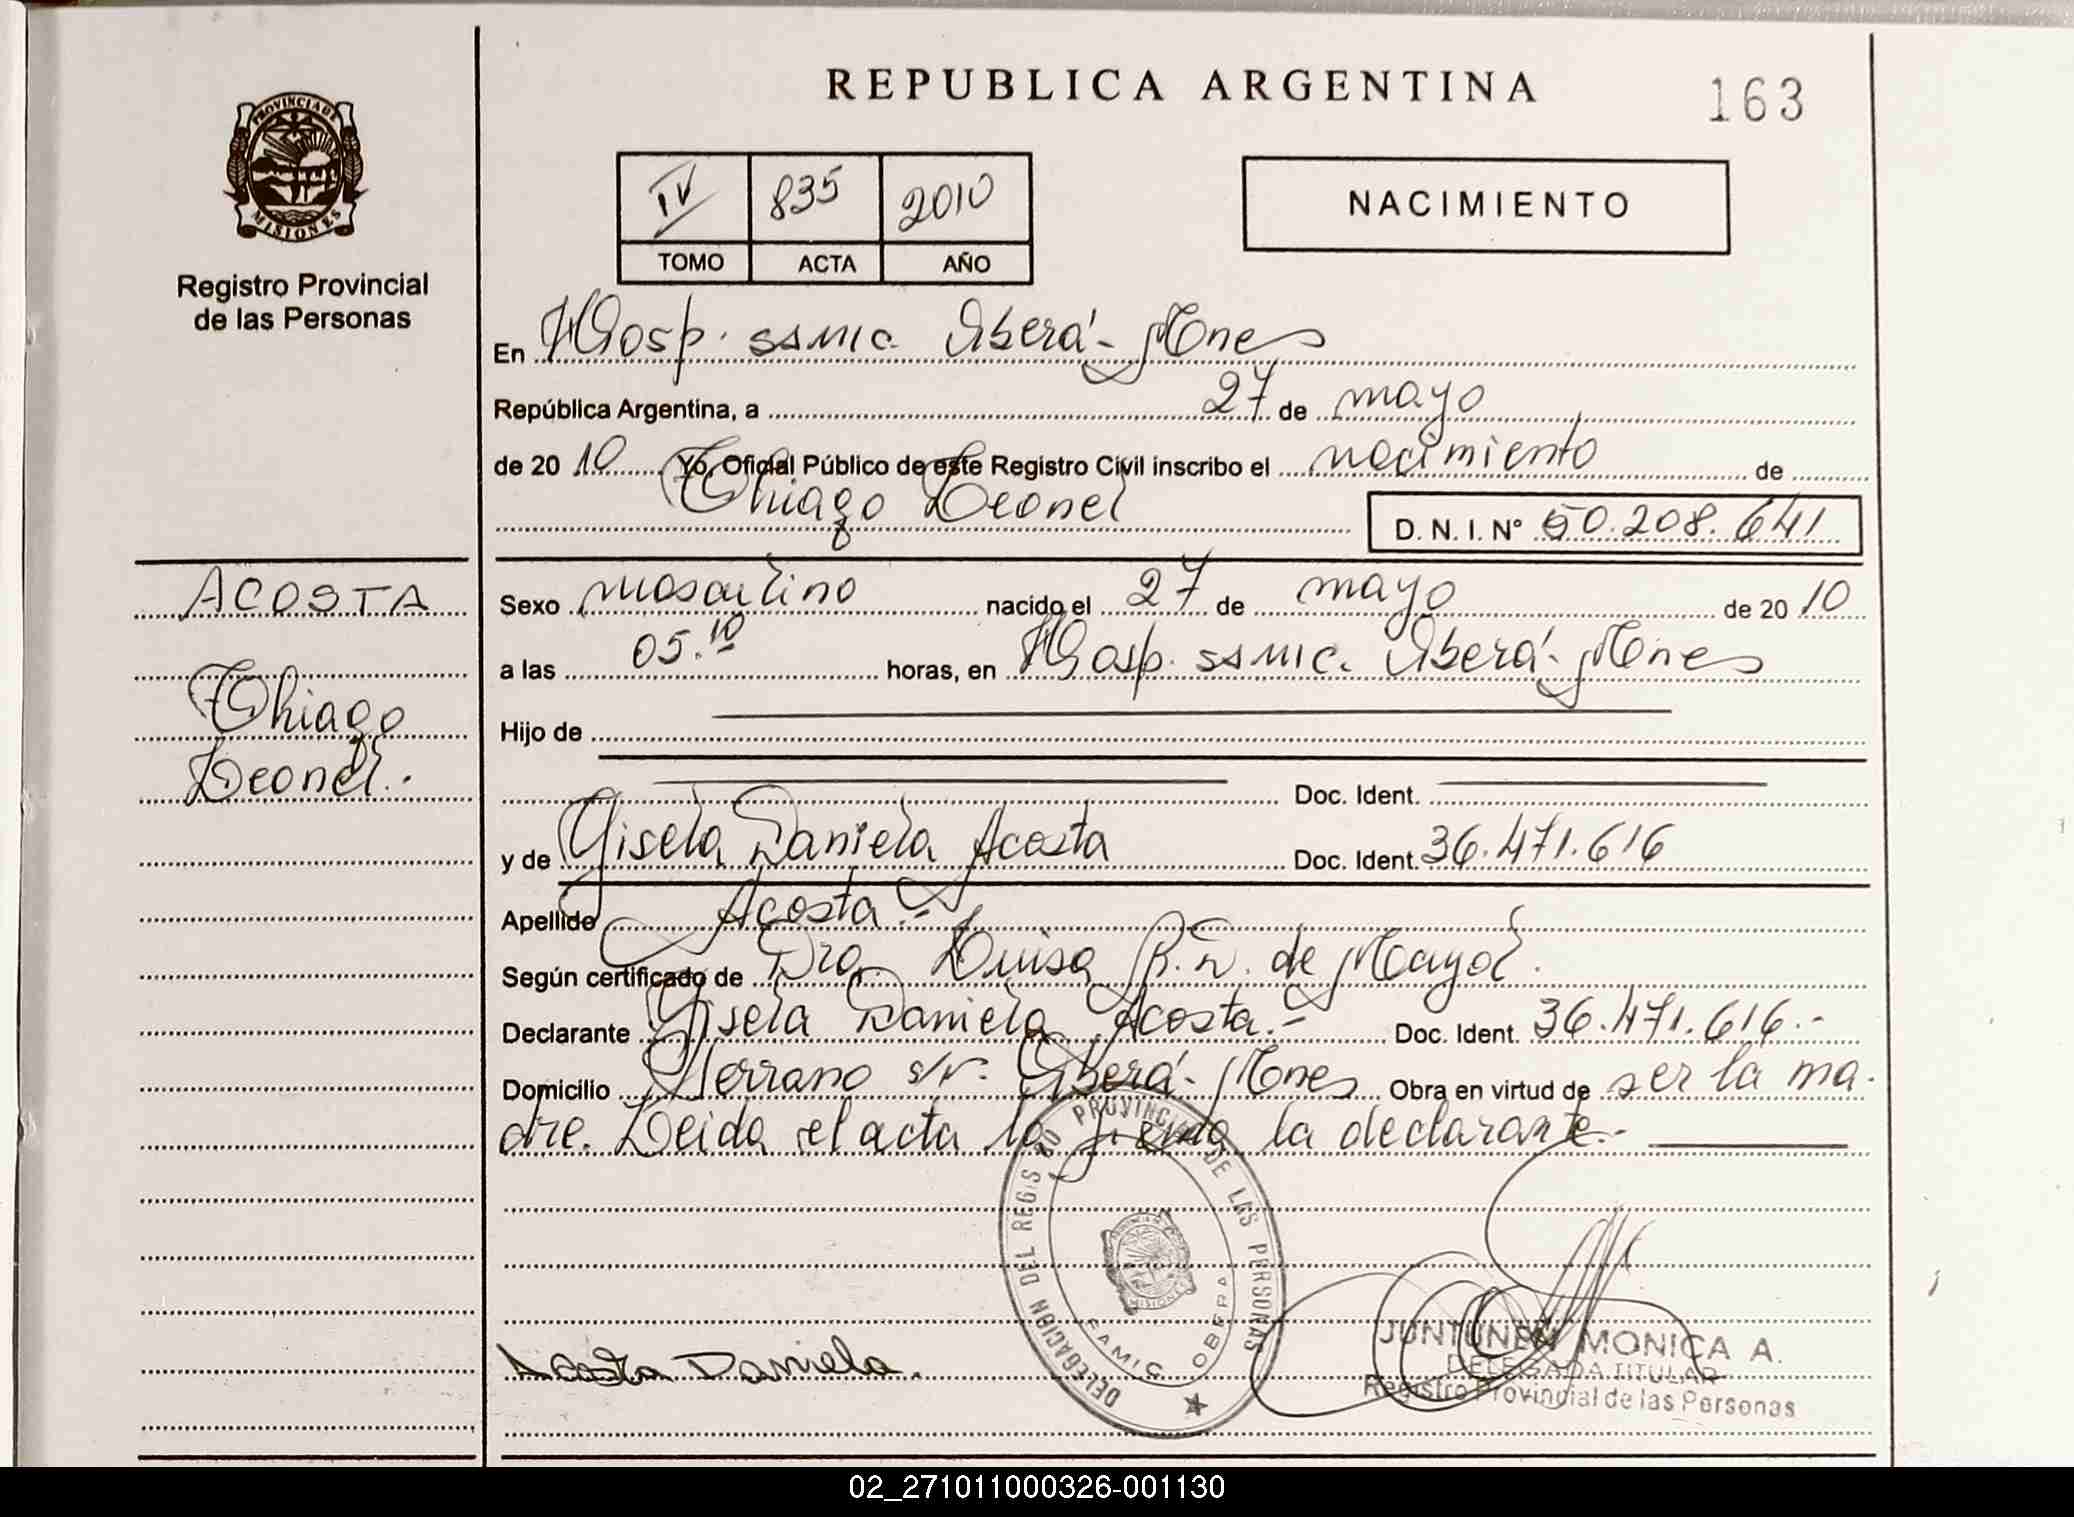 REPUBLICA ARGENTINA
163
PROVINCIA DE
MISIONES
Registro Provincial
de las Personas
IV 835 2010
TOMO ACTA AÑO
NACIMIENTO
En Hosp. SSMIC. Oberá - Mnes
República Argentina, a 27 de mayo
de 20 10 Yo, Oficial Público de este Registro Civil inscribo el nacimiento de
Thiago Leonel
D. N. I. Nº 50.208.641
ACOSTA
Thiago
Leonel.
Sexo masculino nacido el 27 de mayo de 20 10
a las 05.10 horas, en Hosp. SSMIC. Oberá - Mnes
Hijo de
Doc. Ident.
y de Gisela Daniela Acosta Doc. Ident. 36.471.616
Apellido Acosta.-
Según certificado de Dra. Luisa de Mayol.
Declarante Gisela Daniela Acosta.- Doc. Ident. 36.471.616.-
Domicilio Serrano s/n. Oberá - Mnes Obra en virtud de ser la ma-
dre. Leida el acta la firma la declarante.-
DELEGACION DEL REGISTRO PROVINCIAL DE LAS PERSONAS
MISIONES
SAMIC OBERA
Acosta Daniela.
JUNTUNEN MONICA A.
DELEGADA TITULAR
Registro Provincial de las Personas
02_271011000326-001130